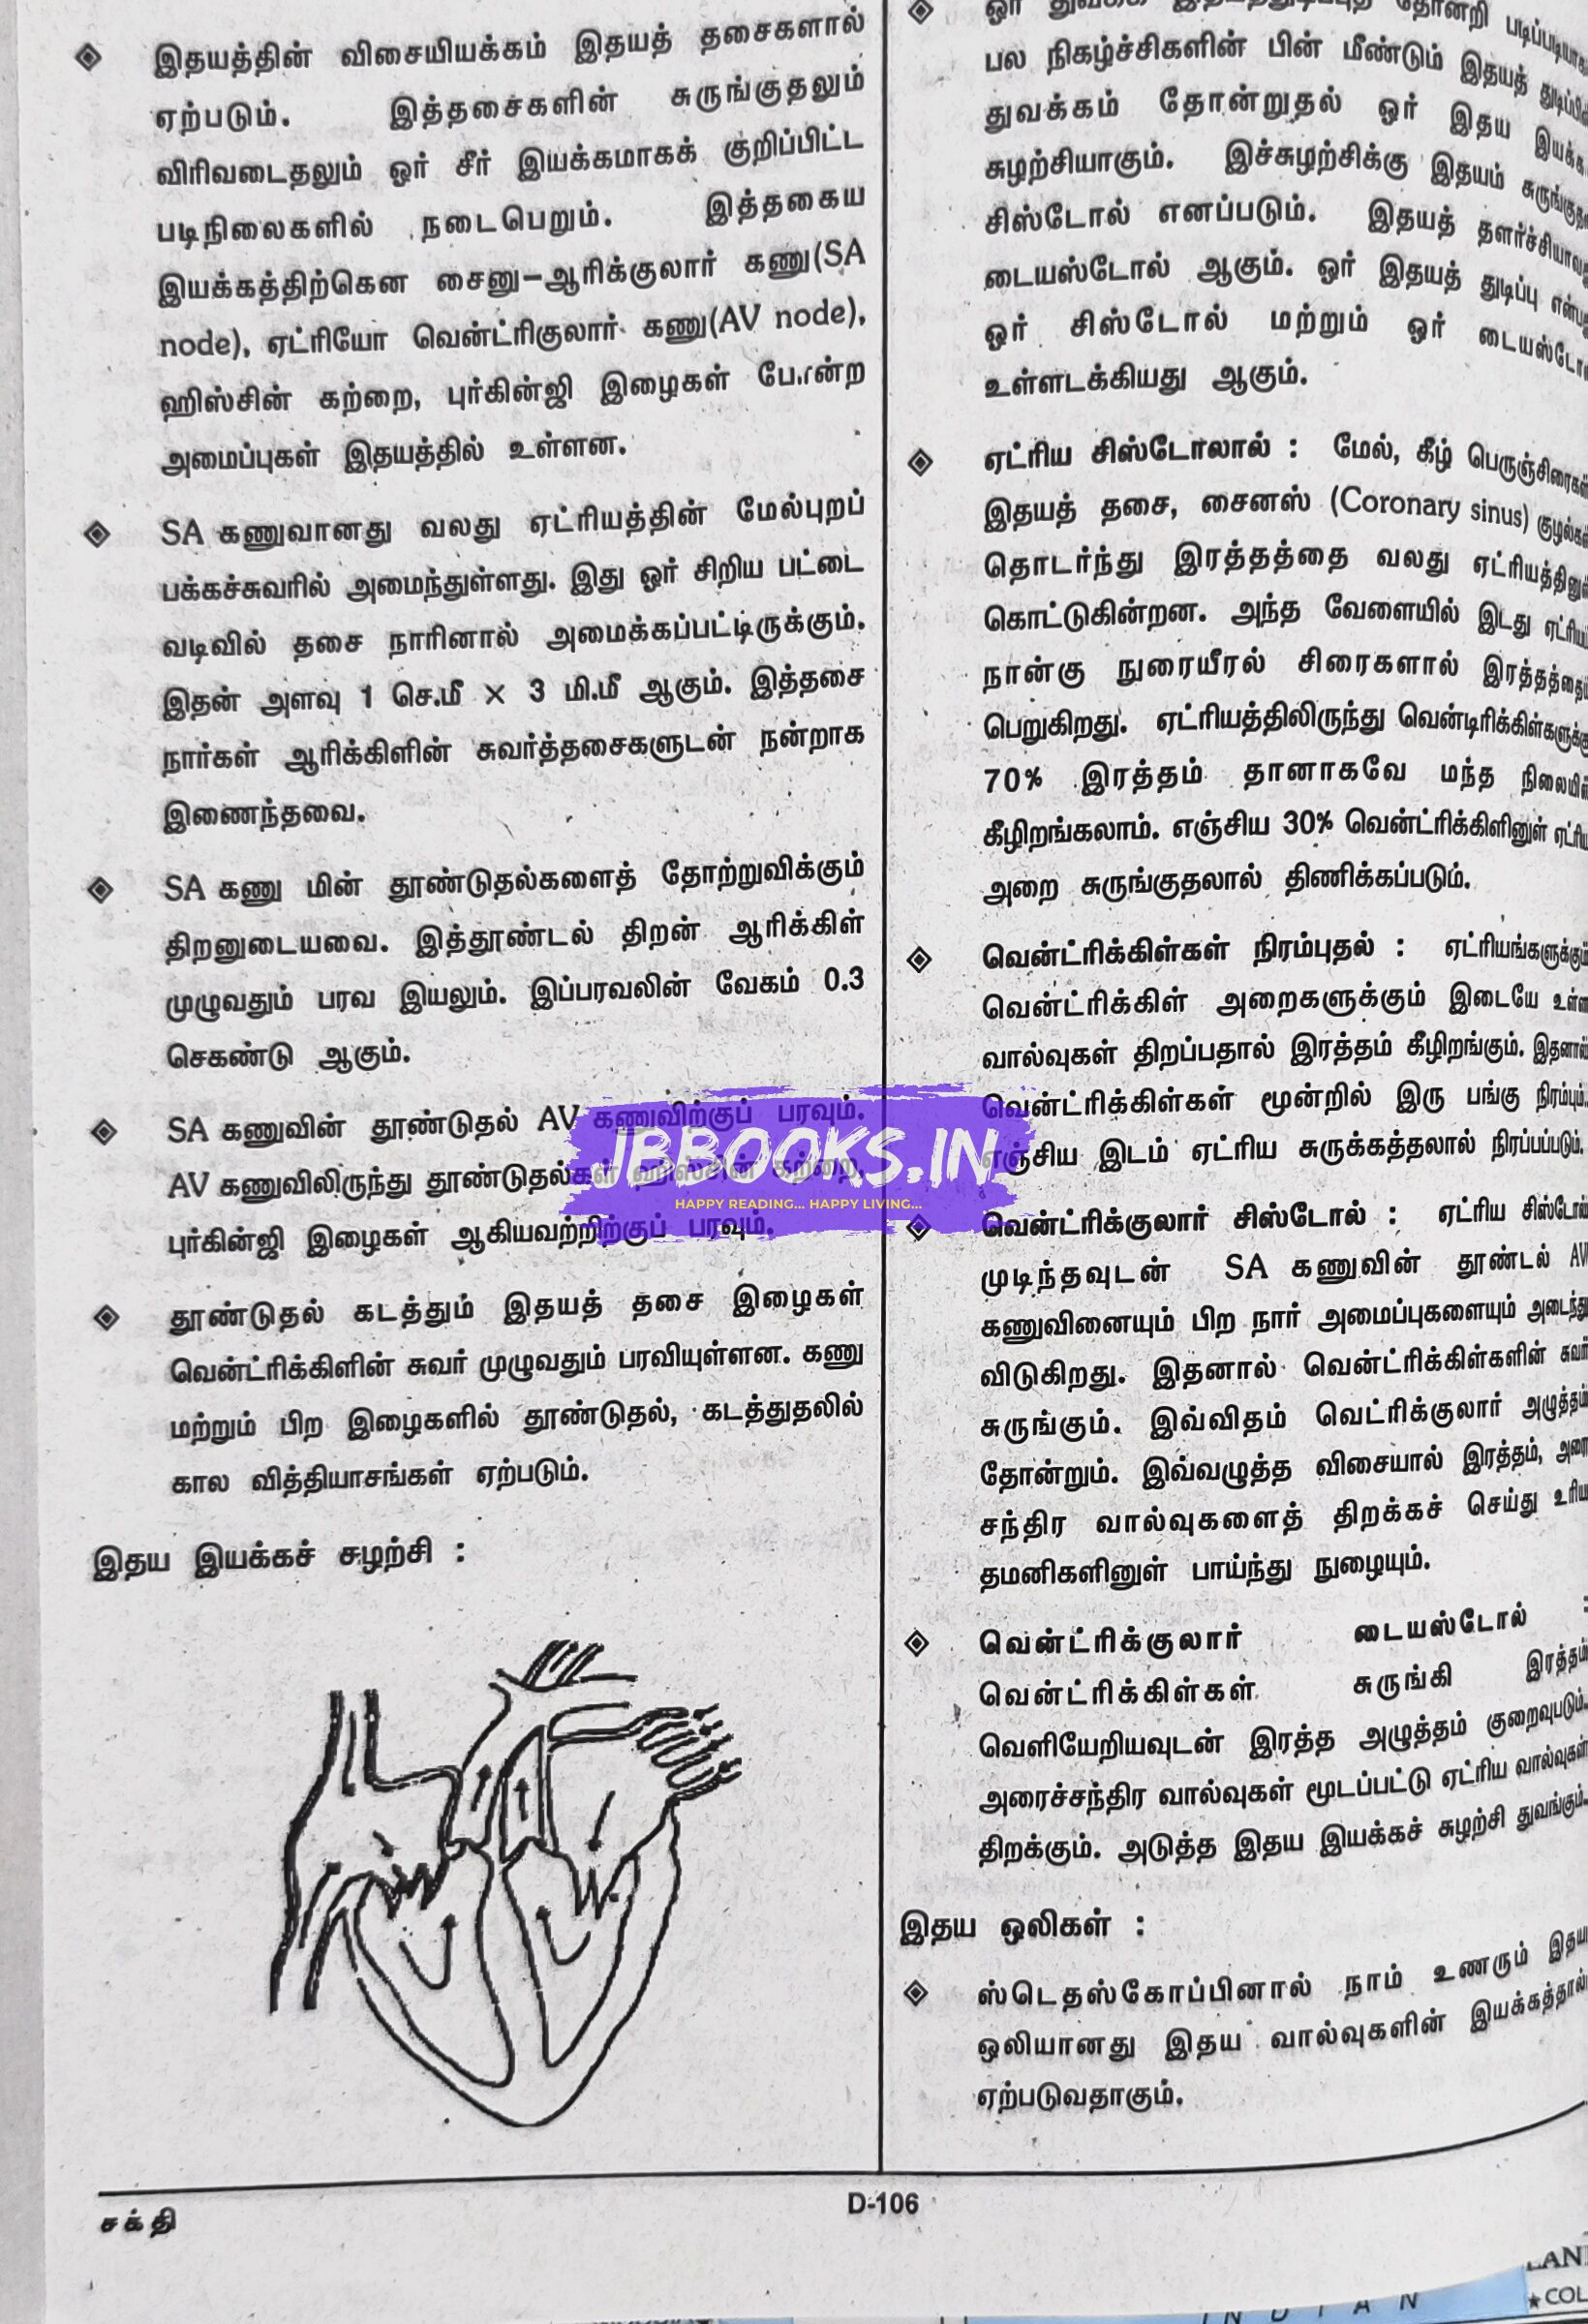 இதயத்தின் விசையியக்கம் இதயத் தசைகளால்
ஏற்படும். இத்தசைகளின் சுருங்குதலும்
விரிவடைதலும் ஓர் சீர் இயக்கமாகக் குறிப்பிட்ட
படிநிலைகளில் நடைபெறும். இத்தகைய
இயக்கத்திற்கென சைனு-ஆரிக்குலார் கணு(SA
node), ஏட்ரியோ வென்ட்ரிகுலார் கணு(AV node),
ஹிஸ்சின் கற்றை, புர்கின்ஜி இழைகள் போன்ற
அமைப்புகள் இதயத்தில் உள்ளன.
SA கணுவானது வலது ஏட்ரியத்தின் மேல்புறப்
பக்கச்சுவரில் அமைந்துள்ளது. இது ஓர் சிறிய பட்டை
வடிவில் தசை நாரினால் அமைக்கப்பட்டிருக்கும்.
இதன் அளவு 1 செ.மீ × 3 மி.மீ ஆகும். இத்தசை
நார்கள் ஆரிக்கிளின் சுவர்த்தசைகளுடன் நன்றாக
இணைந்தவை.
SA கணு மின் தூண்டுதல்களைத் தோற்றுவிக்கும்
திறனுடையவை. இத்தூண்டல் திறன் ஆரிக்கிள்
முழுவதும் பரவ இயலும். இப்பரவலின் வேகம் 0.3
செகண்டு ஆகும்.
SA கணுவின் தூண்டுதல் AV கணுவிற்குப் பரவும்.
AV கணுவிலிருந்து தூண்டுதல்கள் ஹிஸ்சின் கற்றை,
புர்கின்ஜி இழைகள் ஆகியவற்றிற்குப் பரவும்.
தூண்டுதல் கடத்தும் இதயத் தசை இழைகள்
வென்ட்ரிக்கிளின் சுவர் முழுவதும் பரவியுள்ளன. கணு
மற்றும் பிற இழைகளில் தூண்டுதல், கடத்துதலில்
கால வித்தியாசங்கள் ஏற்படும்.
இதய இயக்கச் சுழற்சி :
ஓர் துவக்க தோன்றி படிப்படியாக
பல நிகழ்ச்சிகளின் பின் மீண்டும் இதயத் துடிப்பின்
துவக்கம் தோன்றுதல் ஓர் இதய இயக்க
சுழற்சியாகும். இச்சுழற்சிக்கு இதயம் சுருங்குதல்
சிஸ்டோல் எனப்படும். இதயத் தளர்ச்சியானது
டையஸ்டோல் ஆகும். ஓர் இதயத் துடிப்பு என்பது
ஓர் சிஸ்டோல் மற்றும் ஓர் டையஸ்டோல்
உள்ளடக்கியது ஆகும்.
ஏட்ரிய சிஸ்டோலால் : மேல், கீழ் பெருஞ்சிரைகள்
இதயத் தசை, சைனஸ் (Coronary sinus) குழல்கள்
தொடர்ந்து இரத்தத்தை வலது ஏட்ரியத்தினுள்
கொட்டுகின்றன. அந்த வேளையில் இடது ஏட்ரியம்
நான்கு நுரையீரல் சிரைகளால் இரத்தத்தைப்
பெறுகிறது. ஏட்ரியத்திலிருந்து வென்டிரிக்கிள்களுக்கு
70% இரத்தம் தானாகவே மந்த நிலையில்
கீழிறங்கலாம். எஞ்சிய 30% வென்ட்ரிக்கிளினுள் ஏட்ரிய
அறை சுருங்குதலால் திணிக்கப்படும்.
வென்ட்ரிக்கிள்கள் நிரம்புதல் : ஏட்ரியங்களுக்கும்
வென்ட்ரிக்கிள் அறைகளுக்கும் இடையே உள்ள
வால்வுகள் திறப்பதால் இரத்தம் கீழிறங்கும். இதனால்
வென்ட்ரிக்கிள்கள் மூன்றில் இரு பங்கு நிரம்பும்.
எஞ்சிய இடம் ஏட்ரிய சுருக்கத்தலால் நிரப்பப்படும்.
வென்ட்ரிக்குலார் சிஸ்டோல் : ஏட்ரிய சிஸ்டோல்
முடிந்தவுடன் SA கணுவின் தூண்டல் AV
கணுவினையும் பிற நார் அமைப்புகளையும் அடைந்து
விடுகிறது. இதனால் வென்ட்ரிக்கிள்களின் சுவர்
சுருங்கும். இவ்விதம் வெட்ரிக்குலார் அழுத்தம்
தோன்றும். இவ்வழுத்த விசையால் இரத்தம், அரை
சந்திர வால்வுகளைத் திறக்கச் செய்து உரிய
தமனிகளினுள் பாய்ந்து நுழையும்.
வென்ட்ரிக்குலார் டையஸ்டோல் :
வென்ட்ரிக்கிள்கள் சுருங்கி இரத்தம்
வெளியேறியவுடன் இரத்த அழுத்தம் குறைவுபடும்.
அரைச்சந்திர வால்வுகள் மூடப்பட்டு ஏட்ரிய வால்வுகள்
திறக்கும். அடுத்த இதய இயக்கச் சுழற்சி துவங்கும்.
இதய ஒலிகள் :
ஸ்டெதஸ்கோப்பினால் நாம் உணரும் இதய
ஒலியானது இதய வால்வுகளின் இயக்கத்தால்
ஏற்படுவதாகும்.
JBBOOKS.IN
HAPPY READING... HAPPY LIVING...
சக்தி
D-106
INDIAN
COL